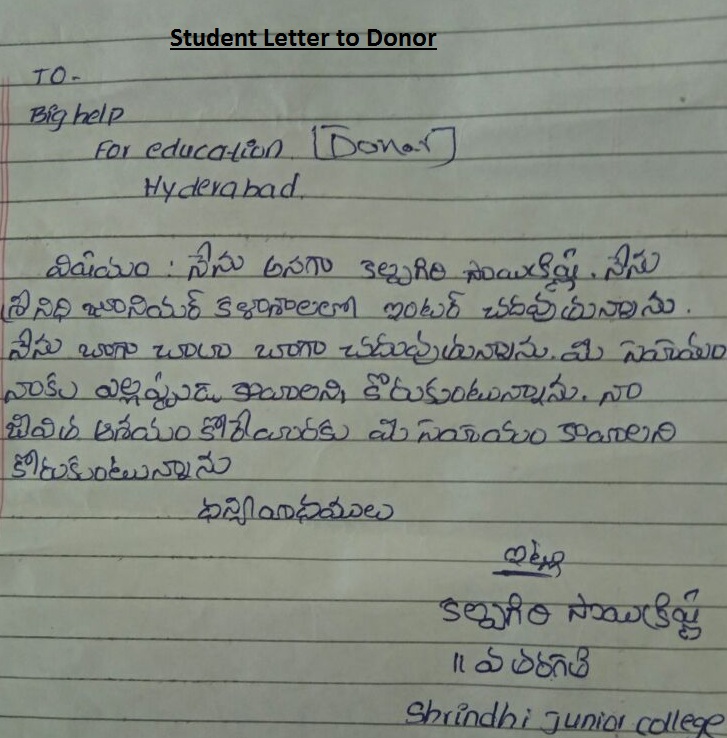 Student Letter to Donor
TO-
Big help
For education [Donar]
Hyderabad.
విషయం : నేను అనగా కల్బుగిరి సాయిక్రిష్ణ. నేను
శ్రీనిధి జూనియర్ కళాశాలలో ఇంటర్ చదువుతున్నాను.
నేను బాగా బాగా బాగా చదువుతున్నాను. మీ సహాయం
నాకు ఎల్లప్పుడు కావాలని కోరుకుంటున్నాను. నా
జీవిత ఆశయం మీ సహాయం కావాలని
కోరుకుంటున్నాను
ధన్యవాధములు
ఇట్లు
కల్బుగిరి సాయిక్రిష్ణ
11 వ తరగతి
Shrindhi Junior college